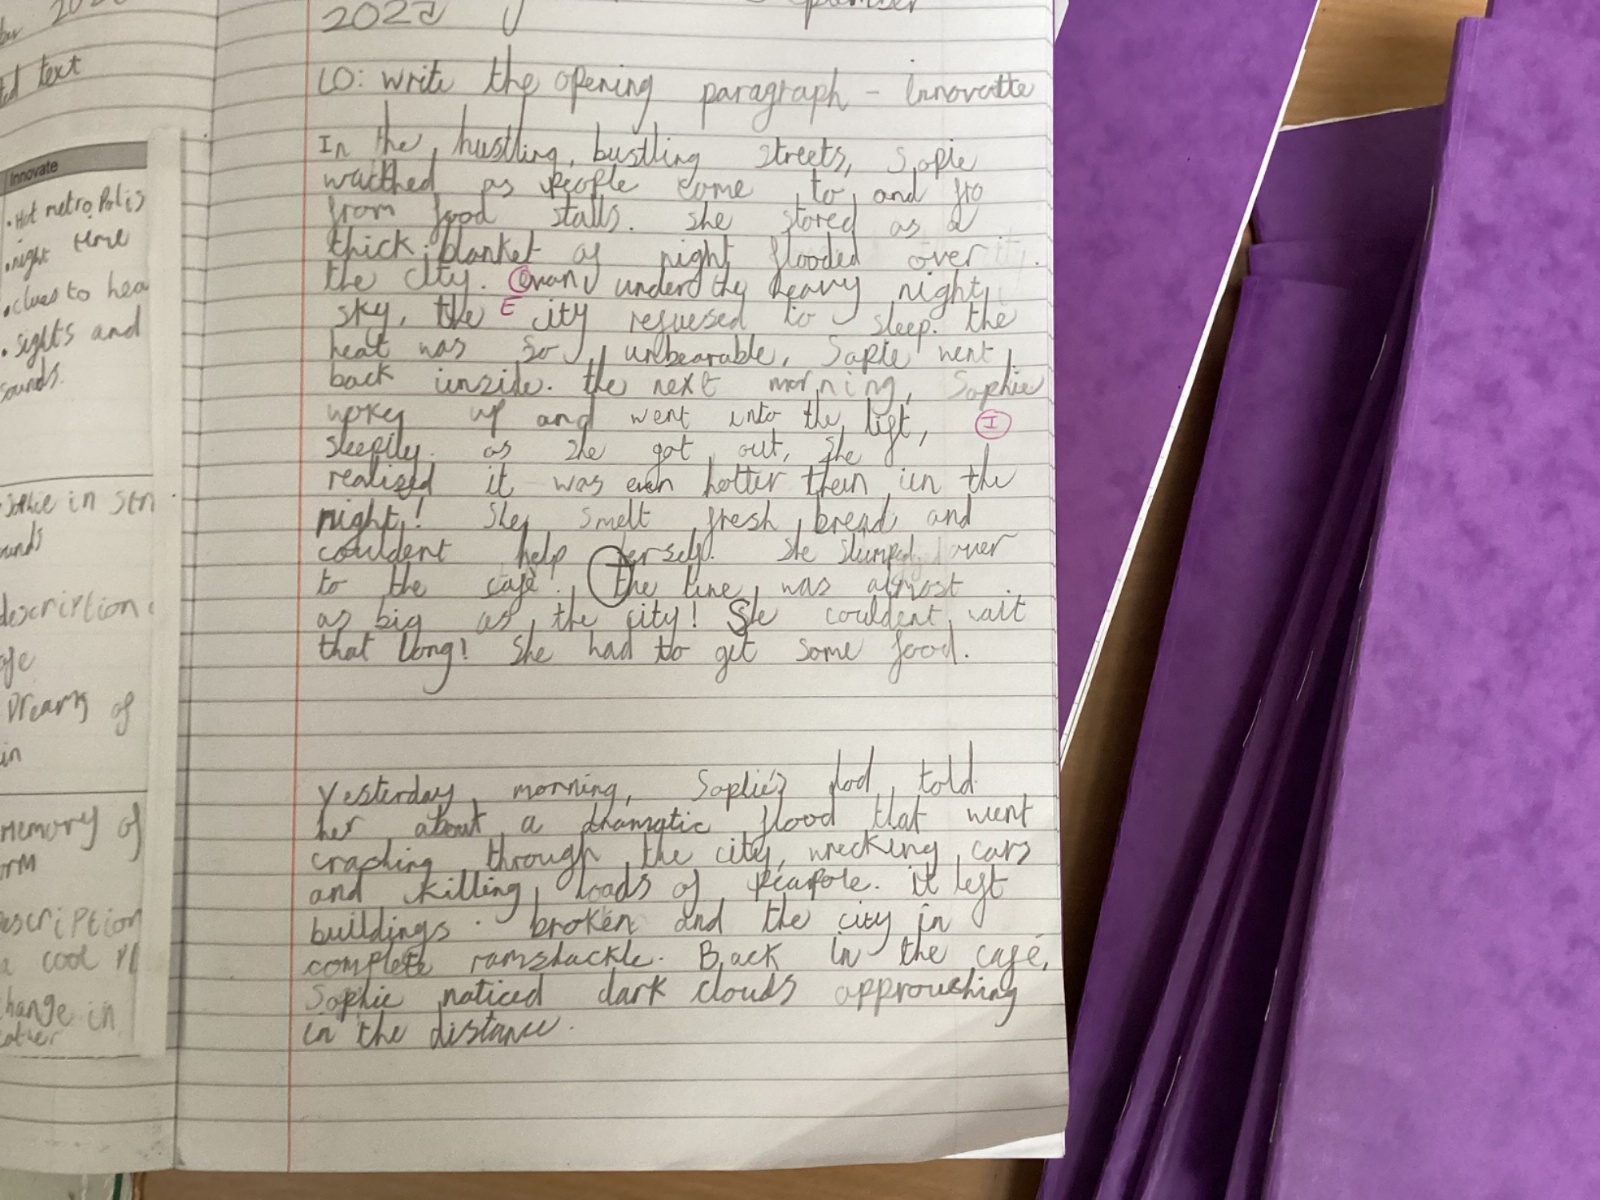 2022
LO: write the opening paragraph - Innovate
In the hustling, bustling streets, Sopie
watched as people come to and fro
from food stalls. she stared as a
thick blanket of night flooded over
the city. under the heavy night
E
sky, the city refuesed to sleep. the
heat was so unbearable, Sopie went
back inside. the next morning, Sophie
up and went into the lift, I
sleepily. as she got out, she
realised it was even hotter than in the
night! She smelt fresh bread and
couldent help herself. She slumped over
to the café. The line was almost
as big as the city! She couldent wait
that long! She had to get some food.
Yesterday morning, Sophie's dad told
her about a dramatic flood that went
crashing through the city, wrecking cars
and killing loads of it left
buildings broken and the city in
complete ramshackle. Back in the café,
Sophie noticed dark clouds approuching
in the distance.
text
Innovate
• Hot metro Polis
• night time
• clues to hea
• sights and
sounds.
Sophie in
description
Dreams of
in
memory of
Description
a cool
change in